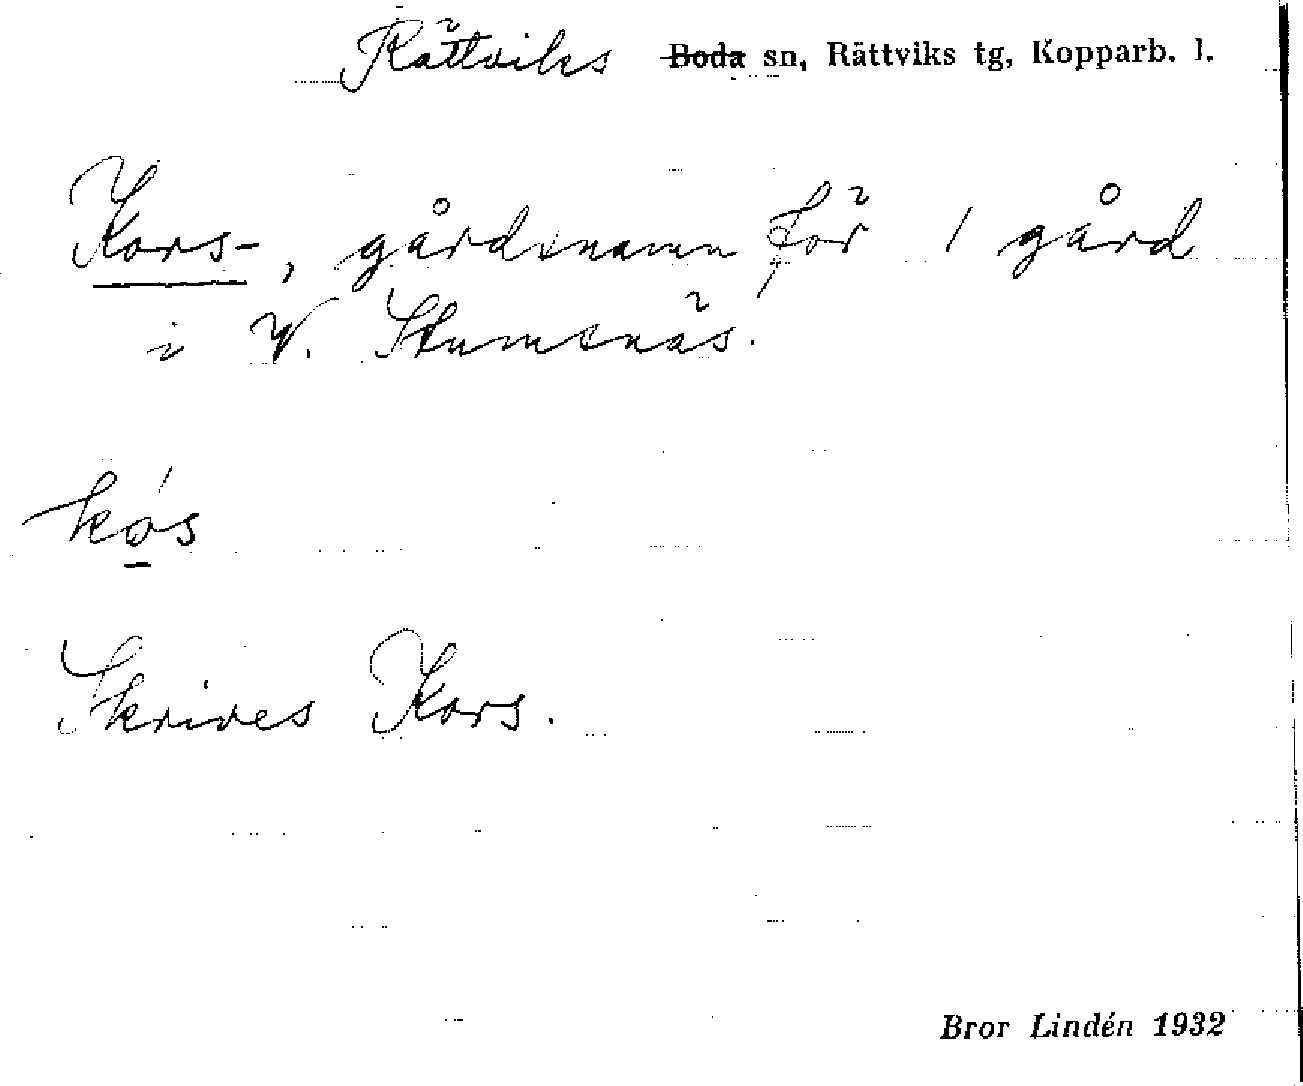 Rättviks Boda sn, Rättviks tg, Kopparb. l.
Kors-, gårdsnamn för 1 gård
i V. Stumsnäs.
kós
Skrives Kors.
Bror Lindén 1932